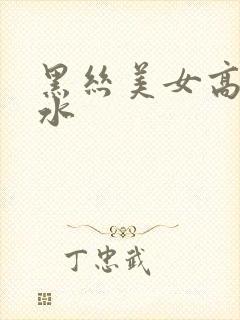 黑丝美女高
水
丁忠武